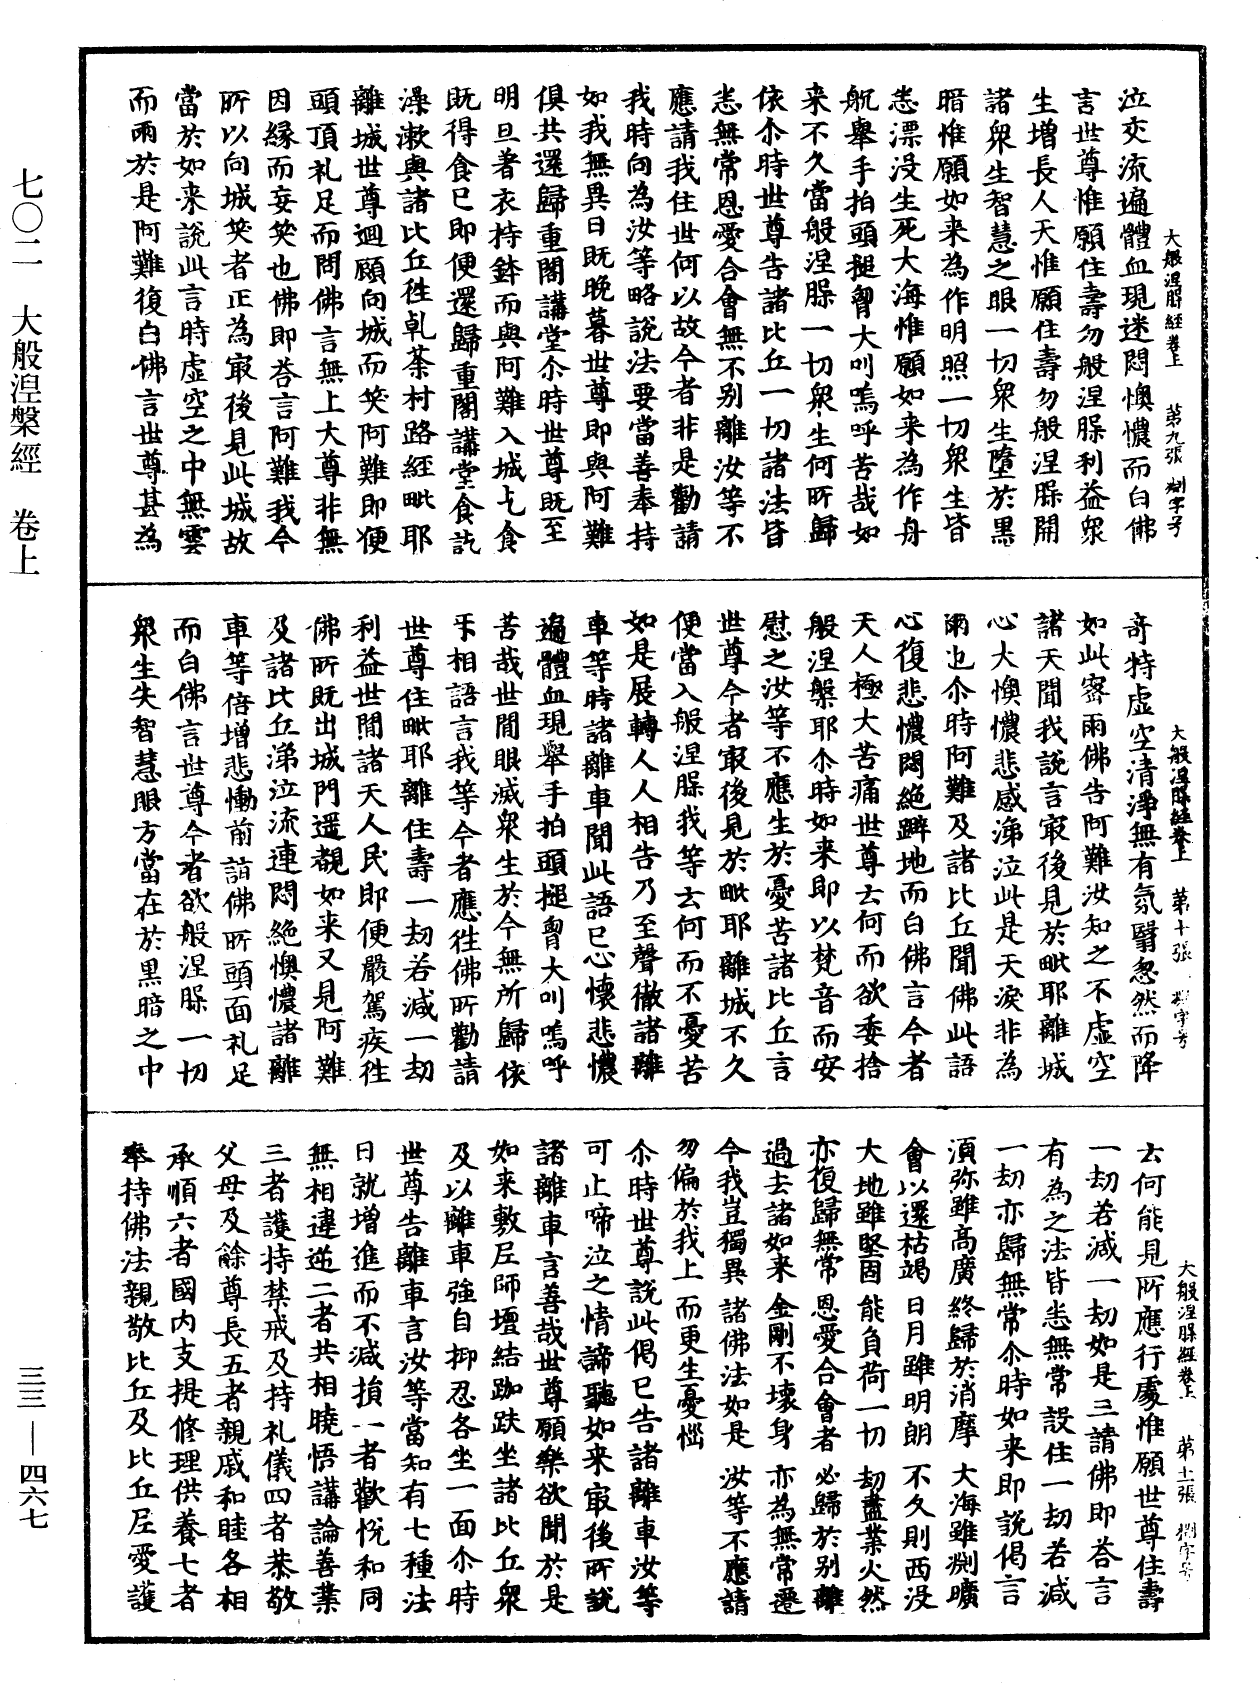 大般涅槃經卷上 第九張 淵字号
泣交流遍體血現迷悶懊憹而白佛
言世尊惟願住壽勿般涅槃利益衆
生增長人天惟願住壽勿般涅槃開
諸衆生智慧之眼一切衆生墮於黑
暗惟願如来為作明照一切衆生皆
悉漂没生死大海惟願如来為作舟
航舉手拍頭搥胷大叫嗚呼苦哉如
来不久當般涅槃一切衆生何所歸
依尒時世尊告諸比丘一切諸法皆
悉無常恩愛合會無不別離汝等不
應請我住世何以故今者非是勸請
我時向為汝等略說法要當善奉持
如我無異日既晚暮世尊即與阿難
俱共還歸重閣講堂尒時世尊既至
明旦著衣持鉢而與阿難入城乞食
既得食已即便還歸重閣講堂食訖
澡漱與諸比丘徃乹荼村路經毗耶
離城世尊迴顧向城而笑阿難即便
頭頂礼足而問佛言無上大尊非無
因緣而妄笑也佛即荅言阿難我今
所以向城笑者正為㝡後見此城故
當於如来說此言時虛空之中無雲
而雨於是阿難復白佛言世尊甚為
大般涅槃經卷上 第十張 淵字号
奇特虛空清淨無有氛翳忽然而降
如此密雨佛告阿難汝知之不虛空
諸天聞我說言㝡後見於毗耶離城
心大懊憹悲感涕泣此是天淚非為
雨也尒時阿難及諸比丘聞佛此語
心復悲憹悶絕躃地而白佛言今者
天人極大苦痛世尊云何而欲委捨
般涅槃耶尒時如来即以梵音而安
慰之汝等不應生於憂苦諸比丘言
世尊今者㝡後見於毗耶離城不久
便當入般涅槃我等云何而不憂苦
如是展轉人人相告乃至聲徹諸離
車等時諸離車聞此語已心懷悲憹
遍體血現舉手拍頭搥胷大叫嗚呼
苦哉世間眼滅衆生於今無所歸依
㸦相語言我等今者應徃佛所勸請
世尊住毗耶離住壽一劫若減一劫
利益世間諸天人民即便嚴駕疾徃
佛所既出城門遥覩如来又見阿難
及諸比丘涕泣流連悶絕懊憹諸離
車等倍增悲慟前詣佛所頭面礼足
而白佛言世尊今者欲般涅槃一切
衆生失智慧眼方當在於黑暗之中
大般涅槃經卷上 第十一張 淵字号
云何能見所應行處惟願世尊住壽
一劫若減一劫如是三請佛即荅言
有為之法皆悉無常設住一劫若減
一劫亦歸無常尒時如来即說偈言
湏弥雖高廣 終歸於消摩 大海雖淵曠
會以還枯竭 日月雖明朗 不久則西没
大地雖堅固 能負荷一切 劫盡業火然
亦復歸無常 恩愛合會者 必歸於別離
過去諸如来 金剛不壞身 亦為無常遷
今我豈獨異 諸佛法如是 汝等不應請
勿偏於我上 而更生憂惱
尒時世尊說此偈已告諸離車汝等
可止啼泣之情諦聽如来㝡後所說
諸離車言善哉世尊願樂欲聞於是
如来敷尼師壇結跏趺坐諸比丘衆
及以離車強自抑忍各坐一面尒時
世尊告離車言汝等當知有七種法
日就增進而不減損一者歡悅和同
無相違逆二者共相曉悟講論善業
三者護持禁戒及持礼儀四者恭敬
父母及餘尊長五者親戚和睦各相
承順六者國内支提修理供養七者
奉持佛法親敬比丘及比丘尼愛護
七〇二 大般涅槃經 卷上
三三—四六七